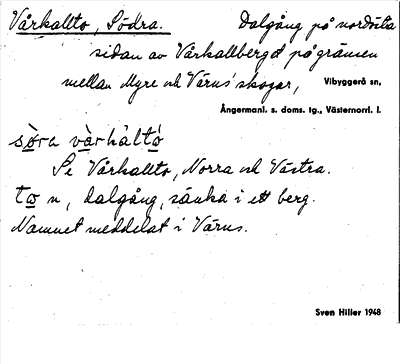 Vårkallto, Södra. Dalgång på nordvästra
sidan av Vårkallberget på gränsen
mellan Myre och Värns' skogar, Vibyggerå sn,
Ångermanl. s. doms. tg., Västernorrl. l.
sò̤ra vàrhàltó̤
Se Vårkallto, Norra och Västra.
to̤ n, dalgång, sänka i ett berg.
Namnet meddelat i Värns.
Sven Hiller 1948